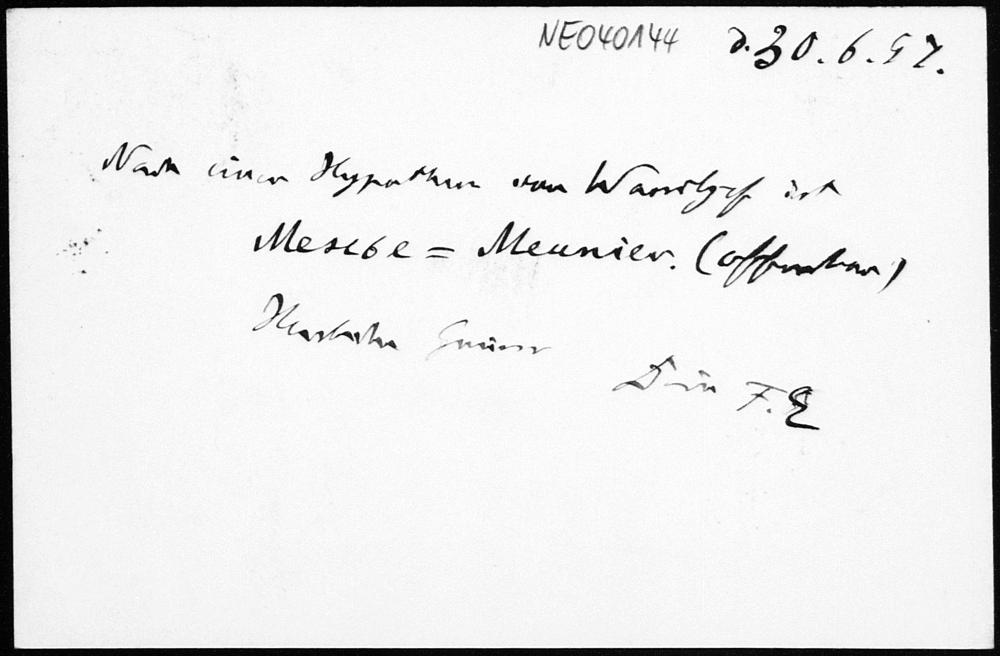 NE040144
d. 30.6.57.
Nach einer Hypothese von ist
Mescbe = Meunier. (offenbar)
Herzliche Grüsse
Dein F. E